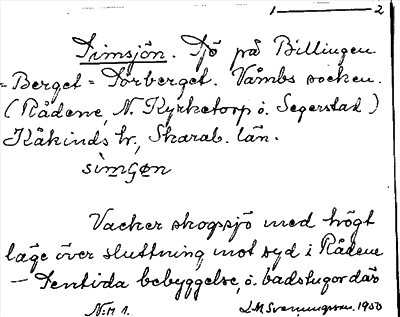 1 — 2
Simsjön. Sjö på Billingen
= Berget = Torberget. Våmbs socken.
(Rådene, N. Kyrketorp o. Segerstad)
Kåkinds hr., Skarab. län.
sìmʃøn
Vacker skogssjö med högt
läge över sluttning mot syd i Rådene
— Sentida bebyggelse, o. badstugor där
N:o 1.